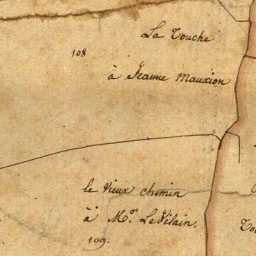 La Touche
108
à Jeanne Mauxion
le vieux chemin
à Mr. LeVilain.
109.